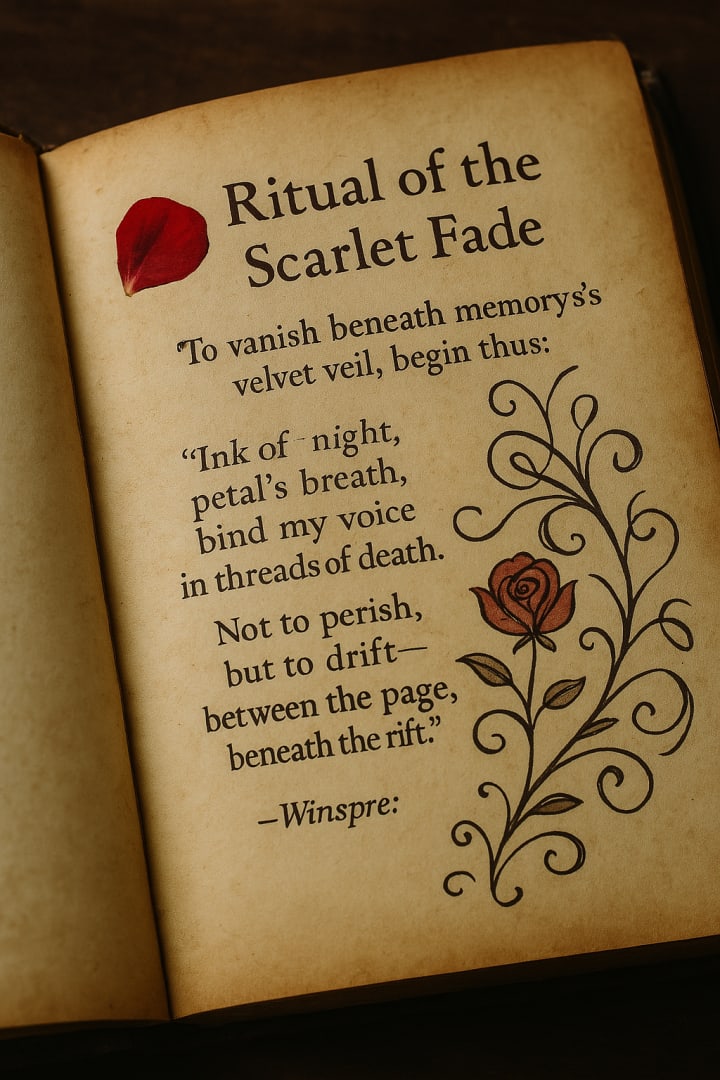 Ritual of the
Scarlet Fade
To vanish beneath memorys's
velvet veil, begin thus:
“Ink of - night,
petal's breath,
bind my voice
in threads of death.
Not to perish,
but to drift—
between the page,
beneath the rift.”
—Winspre: